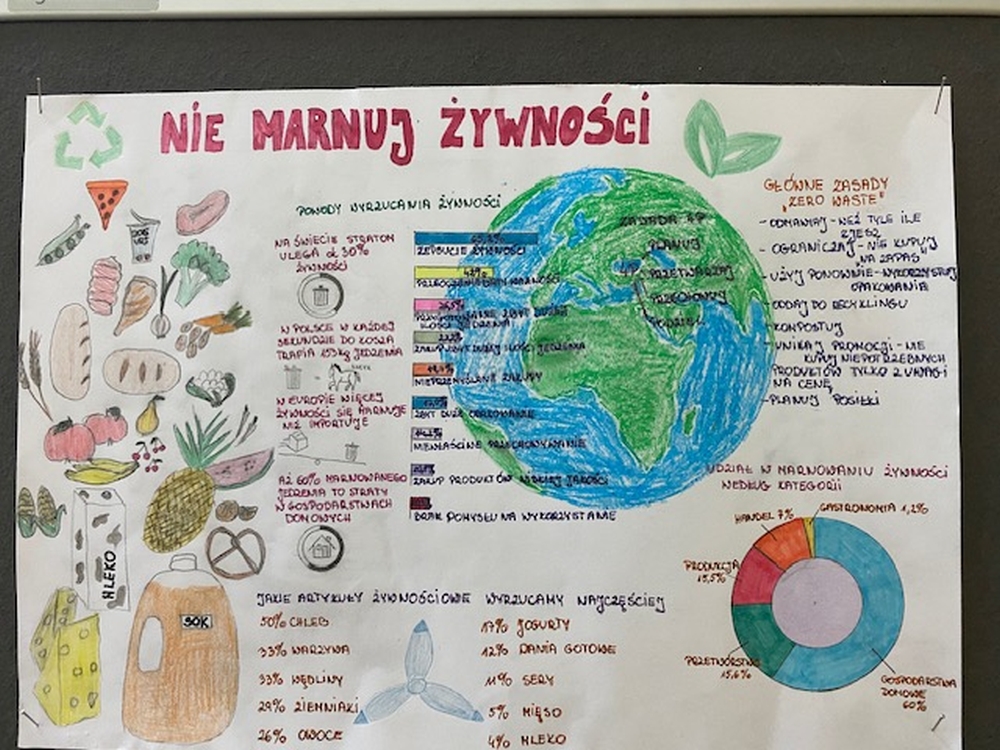 NIE MARNUJ ŻYWNOŚCI
POWODY WYRZUCANIA ŻYWNOŚCI
NA ŚWIECIE STRATOM
ULEGA ok 30%
ŻYWNOŚCI
W POLSCE W KAŻDEJ
SEKUNDZIE DO KOSZA
TRAFIA 153kg JEDZENIA
W EUROPIE WIĘCEJ
ŻYWNOŚCI SIĘ MARNUJE
NIŻ IMPORTUJE
AŻ 60% MARNOWANEGO
JEDZENIA TO STRATY
W GOSPODARSTWACH
DOMOWYCH
ZEPSUCIE ŻYWNOŚCI
42%
PRZEGAPIENIE DATY WAŻNOŚCI
26,5%
ILOŚCI JEDZENIA
ZAKUP ZBYT DUŻEJ ILOŚCI JEDZENIA
NIEPRZEMYŚLANE ZAKUPY
ZBYT DUŻE OPAKOWANIE
NIEWŁAŚCIWE PRZECHOWYWANIE
ZAKUP PRODUKTÓW NISKIEJ JAKOŚCI
BRAK POMYSŁU NA WYKORZYSTANIE
ZASADA 4P
PLANUJ
4P
PRZETWARZAJ
PRZECHOWUJ
PODZIEL
GŁÓWNE ZASADY
„ZERO WASTE"
- ODMAWIAJ - WEŹ TYLE ILE
ZJESZ
- OGRANICZAJ - NIE KUPUJ
„NA ZAPAS"
- UŻYJ PONOWNIE - WYKORZYSTUJ
OPAKOWANIA
- ODDAJ DO RECYKLINGU
- KOMPOSTUJ
- UNIKAJ PROMOCJI - NIE
KUPUJ NIEPOTRZEBNYCH
PRODUKTÓW TYLKO Z UWAGI
NA CENĘ
- PLANUJ POSIŁKI
UDZIAŁ W MARNOWANIU ŻYWNOŚCI
WEDŁUG KATEGORII
HANDEL 7%
GASTRONOMIA 1,2%
PRODUKCJA
15,5%
PRZETWÓRSTWO
15,6%
GOSPODARSTWA
DOMOWE
60%
MLEKO
SOK
JAKIE ARTYKUŁY ŻYWNOŚCIOWE WYRZUCAMY NAJCZĘŚCIEJ
50% CHLEB
33% WARZYWA
33% WĘDLINY
29% ZIEMNIAKI
26% OWOCE
17% JOGURTY
12% DANIA GOTOWE
11% SERY
5% MIĘSO
4% MLEKO